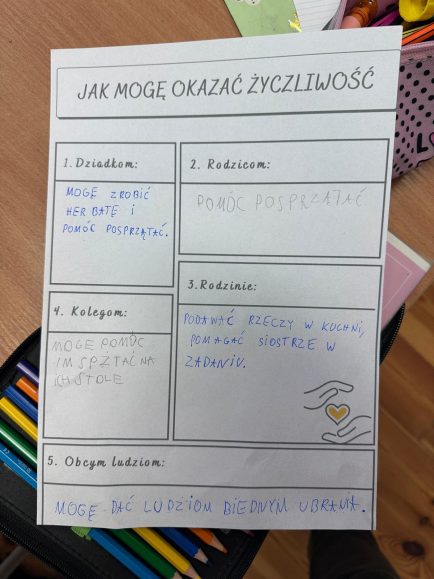 JAK MOGĘ OKAZAĆ ŻYCZLIWOŚĆ
1. Dziadkom:
MOGĘ ZROBIĆ
HERBATĘ I
POMÓC POSPRZĄTAĆ.
2. Rodzicom:
POMÓC POSPRZĄTAĆ
3. Rodzinie:
PODAWAĆ RZECZY W KUCHNI,
POMAGAĆ SIOSTRZE W
ZADANIU.
4. Kolegom:
MOGE POMÓC
IM SPZTAĆ NA
ICH STOLE
5. Obcym ludziom:
MOGĘ DAĆ LUDZIOM BIEDNYM UBRANIA.